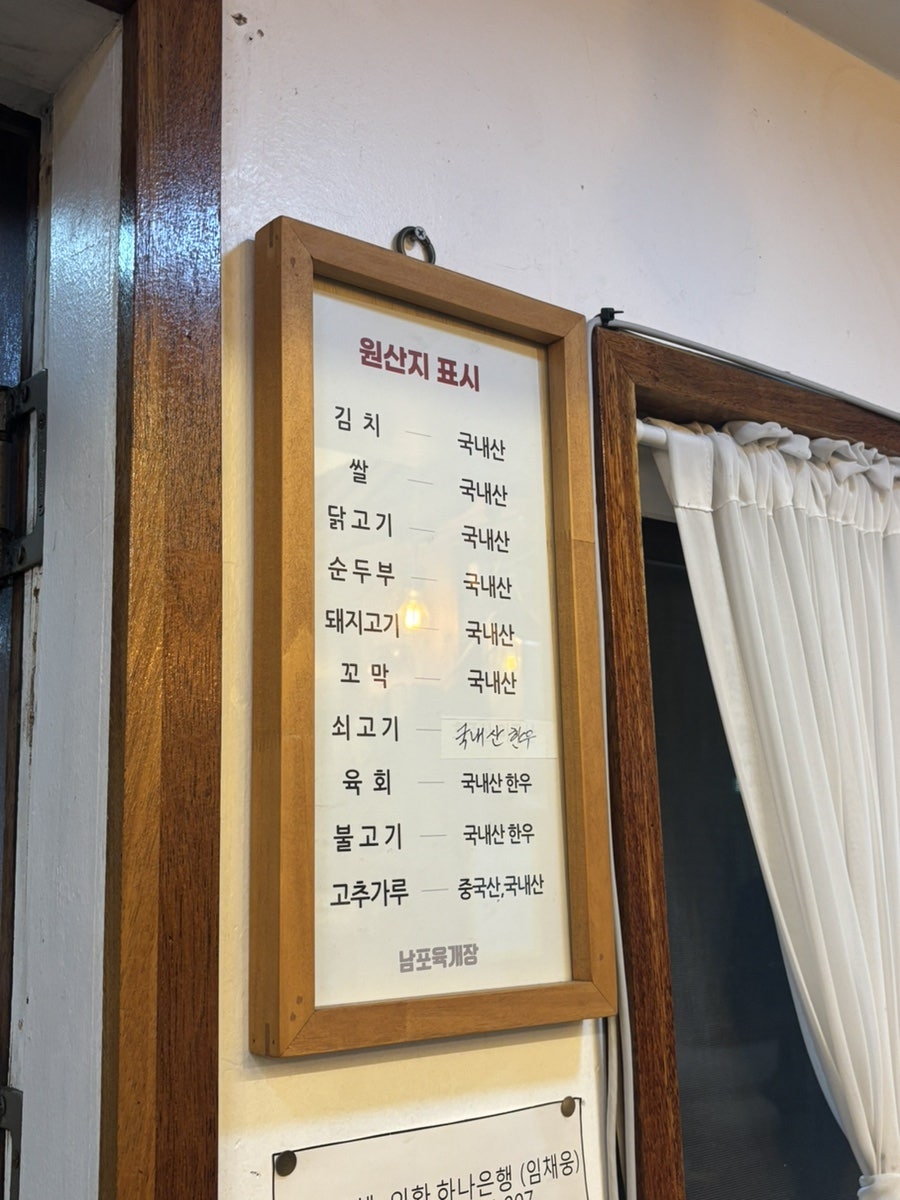 원산지 표시
김치 — 국내산
쌀 — 국내산
닭고기 — 국내산
순두부 — 국내산
돼지고기 — 국내산
꼬막 — 국내산
쇠고기 국내산 한우
육회 — 국내산 한우
불고기 — 국내산 한우
고추가루 — 중국산,국내산
남포육개장
하나은행 (임채웅)